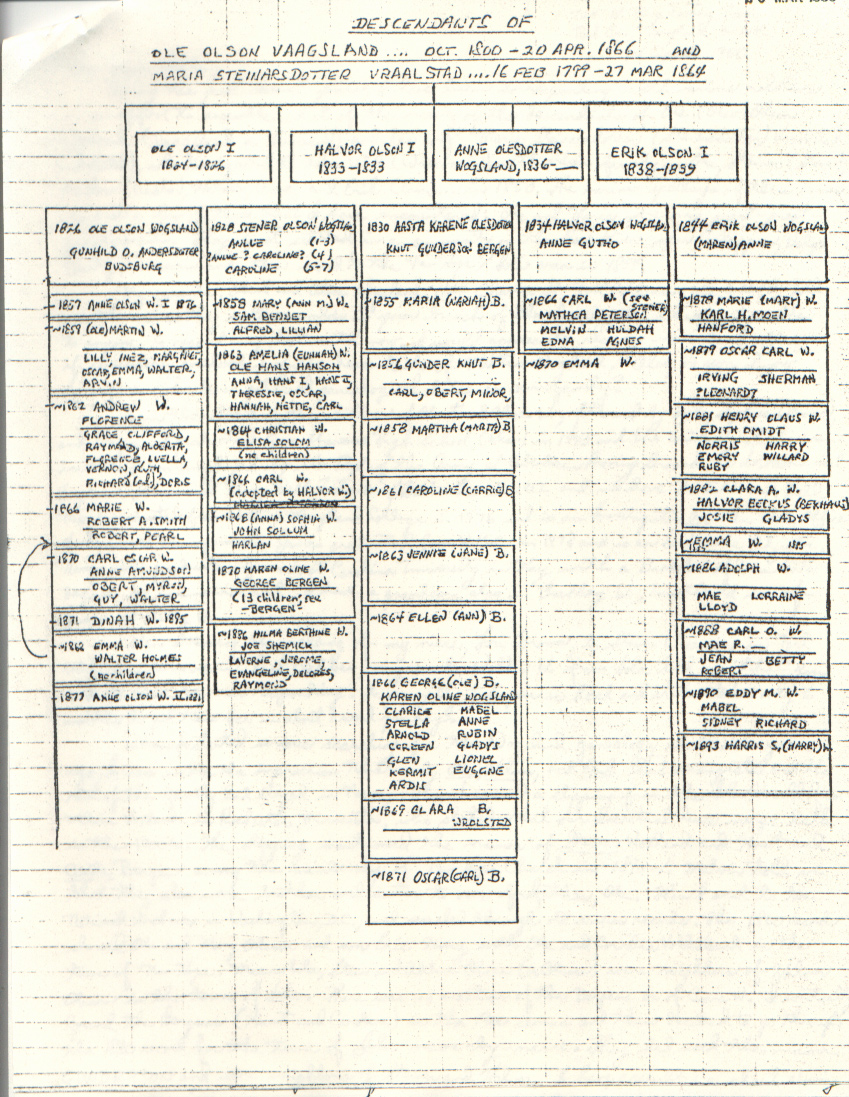 DESCENDANTS OF
OLE OLSON VAAGSLAND .... OCT. 1800 - 20 APR. 1866 AND
MARIA STEINARSDOTTER VRAALSTAD .... 16 FEB 1799 - 27 MAR 1864
OLE OLSON I
1824-1826
HALVOR OLSON I
1833-1833
ANNE OLESDOTTER
WOGSLAND, 1836-___
ERIK OLSON I
1838-1839
1826 OLE OLSON WOGSLAND
GUNHILD O. ANDERSDOTTER
BUDSBURG
-1857 ANNE OLSON W. I 1876
~1859 (OLE) MARTIN W.
LILLY INEZ, MARGARET,
OSCAR, EMMA, WALTER,
ARVIN
~1862 ANDREW W.
FLORENCE
GRACE, CLIFFORD,
RAYMOND, ALBERTA,
FLORENCE, LUELLA,
VERNON, RUTH,
RICHARD (ad.), DORIS
1866 MARIE W.
ROBERT A. SMITH
ROBERT, PEARL
1870 CARL OSCAR W.
ANNE AMUNDSON
OBERT, MYRON,
GUY, WALTER
1871 DINAH W. 1895
~1862 EMMA W.
WALTER HOLMES
(no children)
1877 ANNE OLSON W. II 1881
1828 STENER OLSON WOGSLAND
ANLUE (1-3)
?ANLUE? CAROLINE? (4)
CAROLINE (5-7)
~1858 MARY (ANN M.) W.
SAM BENNET
ALFRED, LILLIAN
1863 AMELIA (EUNNAH) W.
OLE HANS HANSON
ANNA, HANS I, HANS II,
THERESSIE, OSCAR,
HANNAH, NETTIE, CARL
~1864 CHRISTIAN W.
ELISA SOLUM
(no children)
~1866 CARL W.
(adopted by HALVOR W.)
~1868 (ANNA) SOPHIA W.
JOHN SOLLUM
HARLAN
1870 KAREN OLINE W.
GEORGE BERGEN
(13 children, see
-BERGEN-)
~1886 HILMA BERTHINE W.
JOE SHEMICK
LAVERNE, JEROME,
EVANGELINE, DELORES,
RAYMOND
1830 AASTA KARENE OLESDOTTER
KNUT GUNDERSON BERGEN
~1855 MARIA (MARIAH) B.
~1856 GUNDER KNUT B.
CARL, OBERT, MINOR,
~1858 MARTHA (MARTA) B.
~1861 CAROLINE (CARRIE) B
~1863 JENNIE (JANE) B.
~1864 ELLEN (ANN) B.
1866 GEORGE (OLE) B.
KAREN OLINE WOGSLAND
CLARICE MABEL
STELLA ANNE
ARNOLD RUBIN
COREEN GLADYS
GLEN LIONEL
KERMIT EUGENE
ARDIS
~1869 CLARA B.
WROLSTED
~1871 OSCAR (CARL) B.
1834 HALVOR OLSON WOGSLAND
ANNE GUTHO
~1866 CARL W. (see STENER)
MATHEA PETERSON
MELVIN HULDAH
EDNA AGNES
~1870 EMMA W.
1844 ERIK OLSON WOGSLAND
(MAREN) ANNE
~1878 MARIE (MARY) W.
KARL H. MOEN
HANFORD
~1879 OSCAR CARL W.
IRVING SHERMAN
?LEONARD?
~1881 HENRY CLAUS W.
EDITH OMIDT
NORRIS HARRY
EMORY WILLARD
RUBY
~1882 CLARA A. W.
HALVOR BECKUS (BEKHAUS)
JOSIE GLADYS
~EMMA W. 1885
~1886 ADOLPH W.
MAE LORRAINE
LLOYD
~1888 CARL O. W.
MAE R. __
JEAN BETTY
ROBERT
~1890 EDDY M. W.
MABEL
SIDNEY RICHARD
~1893 HARRIS S. (HARRY) W.